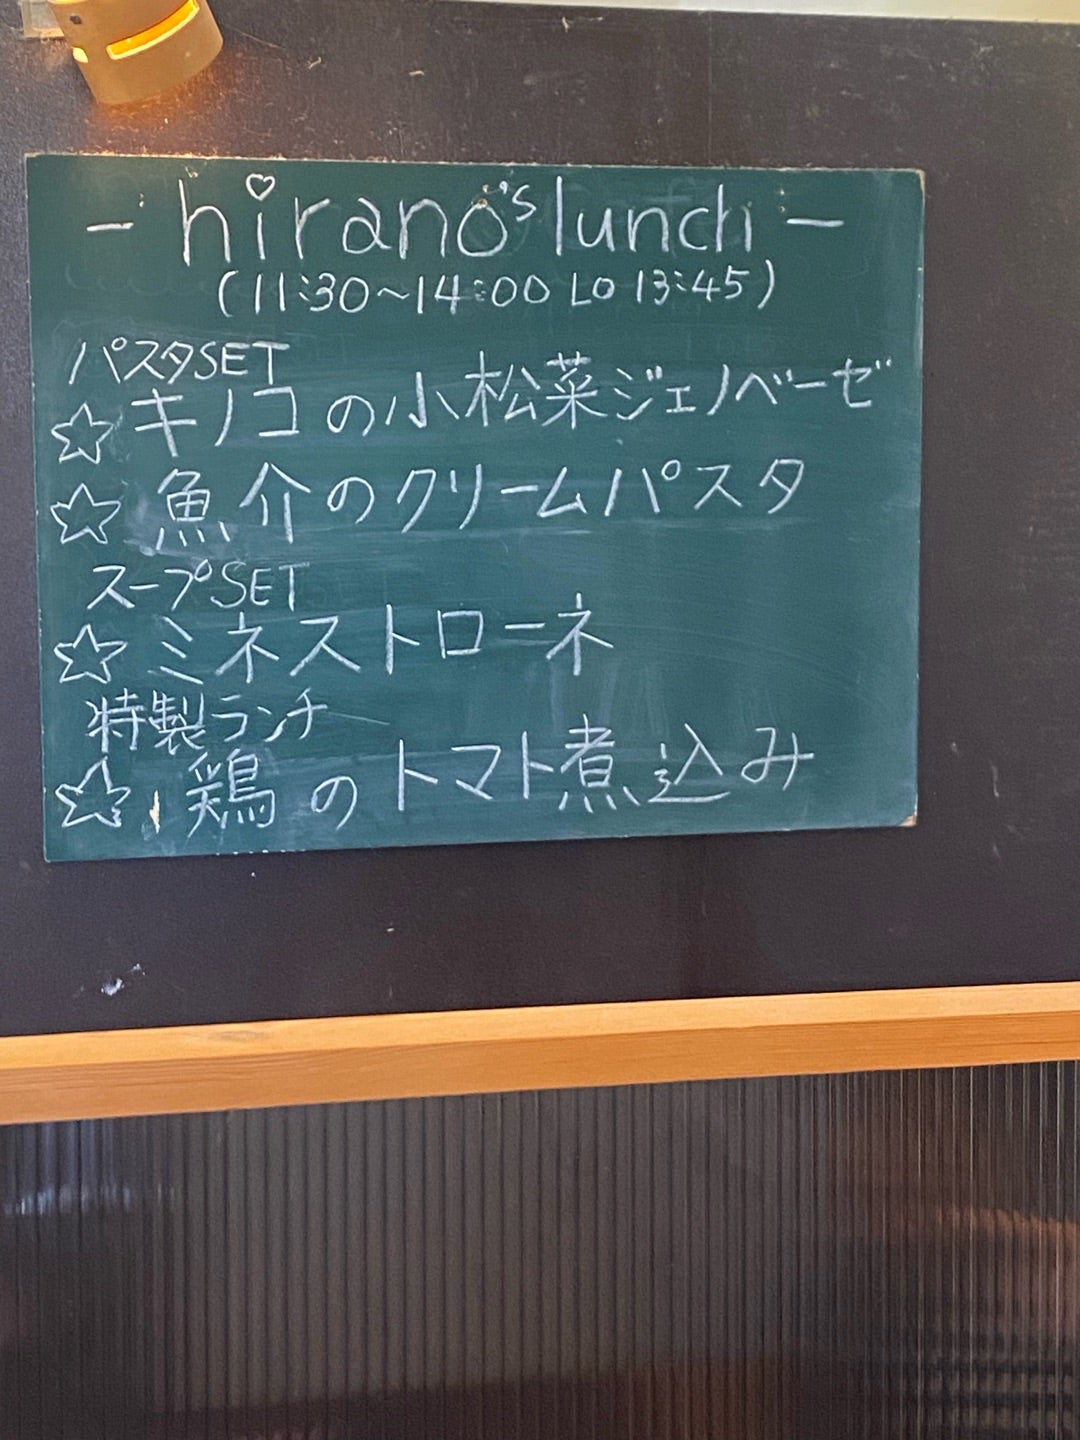 - hirano's lunch -
(11:30～14:00 LO 13:45)
パスタSET
☆ キノコの小松菜ジェノベーゼ
☆ 魚介のクリームパスタ
スープSET
☆ ミネストローネ
特製ランチ
☆ 鶏のトマト煮込み